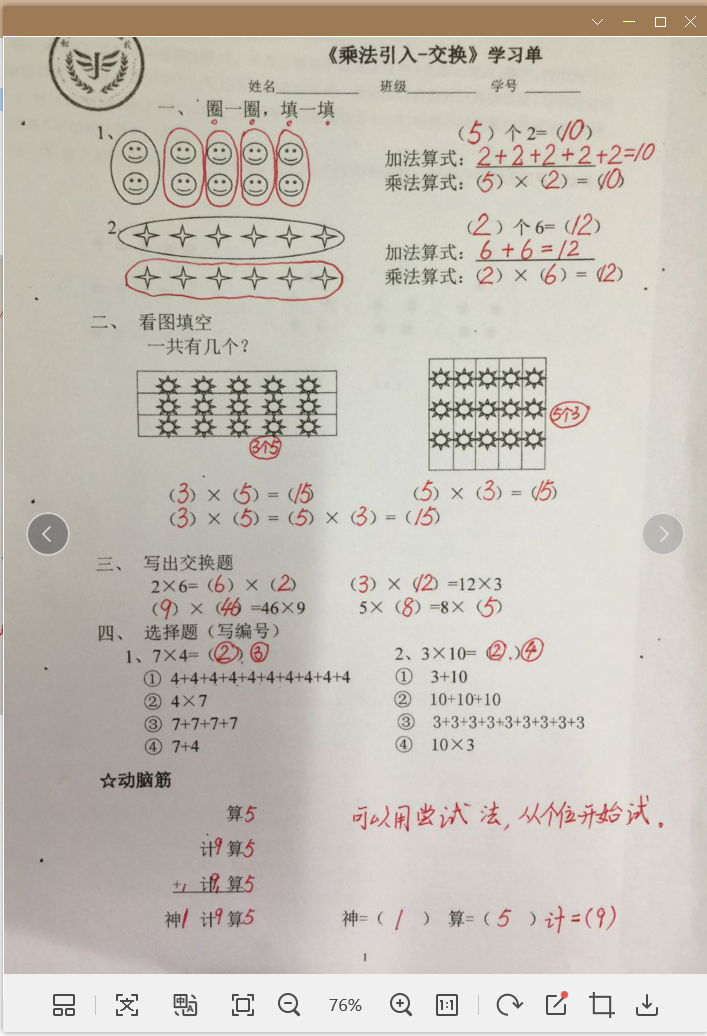 《乘法引入-交换》学习单
姓名__________ 班级________ 学号 ______
一、 圈一圈，填一填
1、
（5）个 2=（10）
加法算式：2+2+2+2+2=10
乘法算式：（5）×（2）=（10）
2
（2）个 6=（12）
加法算式：6+6=12
乘法算式：（2）×（6）=（12）
二、 看图填空
一共有几个？
3个5
5个3
（3）×（5）=（15）
（5）×（3）=（15）
（3）×（5）=（5）×（3）=（15）
三、 写出交换题
2×6=（6）×（2） （3）×（12）=12×3
（9）×（46）=46×9 5×（8）=8×（5）
四、 选择题（写编号）
1、7×4=（②）③
① 4+4+4+4+4+4+4+4+4+4
② 4×7
③ 7+7+7+7
④ 7+4
2、3×10=（②.）④
① 3+10
② 10+10+10
③ 3+3+3+3+3+3+3+3+3
④ 10×3
☆动脑筋
算5
计9 算5
+1 计9 1 算5
神1 计9 算5
可以用尝试法，从个位开始试。
神=（1） 算=（5）计=（9）
1
76%
1:1